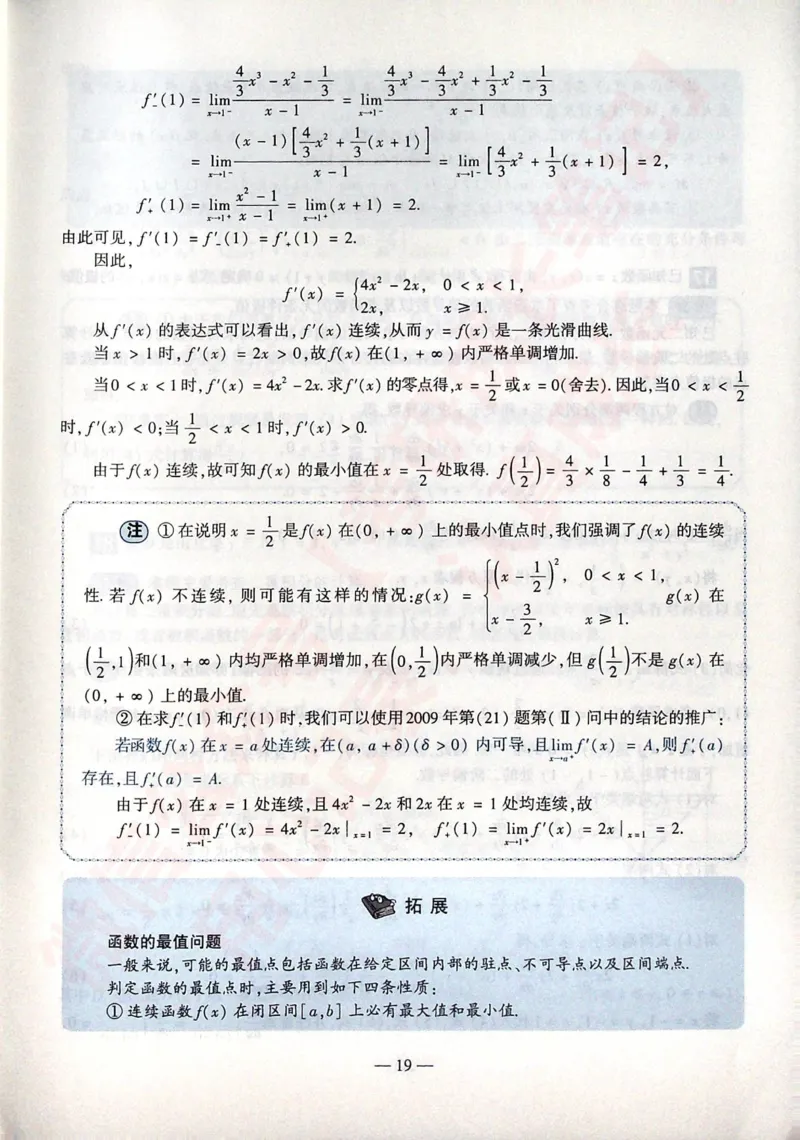 f′₋(1) = lim_{x→1⁻} (4/3 x³ - x² - 1/3)/(x - 1) = lim_{x→1⁻} (4/3 x³ - 4/3 x² + 1/3 x² - 1/3)/(x - 1)
= lim_{x→1⁻} (x - 1)[4/3 x² + 1/3 (x + 1)]/(x - 1) = lim_{x→1⁻} [4/3 x² + 1/3 (x + 1)] = 2,
f′₊(1) = lim_{x→1⁺} (x² - 1)/(x - 1) = lim_{x→1⁺} (x + 1) = 2.
由此可见, f′(1) = f′₋(1) = f′₊(1) = 2.
因此,
f′(x) = { 4x² - 2x, 0 < x < 1,
2x, x ≥ 1.
从 f′(x) 的表达式可以看出, f′(x) 连续,从而 y = f(x) 是一条光滑曲线.
当 x > 1 时, f′(x) = 2x > 0,故 f(x) 在(1, + ∞) 内严格单调增加.
当0 < x < 1时, f′(x) = 4x² - 2x. 求 f′(x) 的零点得, x = 1/2 或 x = 0(舍去). 因此,当0 < x < 1/2
时, f′(x) < 0;当 1/2 < x < 1时, f′(x) > 0.
由于 f(x) 连续,故可知 f(x) 的最小值在 x = 1/2 处取得. f(1/2) = 4/3 × 1/8 - 1/4 + 1/3 = 1/4.
注 ①在说明 x = 1/2 是 f(x) 在(0, + ∞) 上的最小值点时,我们强调了 f(x) 的连续
性. 若 f(x) 不连续, 则可能有这样的情况:g(x) = { (x - 1/2)², 0 < x < 1,
x - 3/2, x ≥ 1. g(x) 在
(1/2,1)和(1, + ∞) 内均严格单调增加,在(0,1/2)内严格单调减少,但 g(1/2)不是 g(x) 在
(0, + ∞) 上的最小值.
②在求 f′₋(1) 和 f′₊(1) 时,我们可以使用2009 年第(21) 题第(Ⅱ) 问中的结论的推广:
若函数 f(x) 在 x = a 处连续,在(a, a+δ)(δ > 0) 内可导,且 lim_{x→a⁺} f′(x) = A,则 f′₊(a)
存在,且 f′₊(a) = A.
由于 f(x) 在 x = 1 处连续,且 4x² - 2x 和 2x 在 x = 1 处均连续,故
f′₋(1) = lim_{x→1⁻} f′(x) = 4x² - 2x |_{x=1} = 2, f′₊(1) = lim_{x→1⁺} f′(x) = 2x |_{x=1} = 2.
拓展
函数的最值问题
一般来说,可能的最值点包括函数在给定区间内部的驻点、不可导点以及区间端点.
判定函数的最值点时,主要用到如下四条性质:
①连续函数 f(x) 在闭区间[a,b] 上必有最大值和最小值.
— 19 —